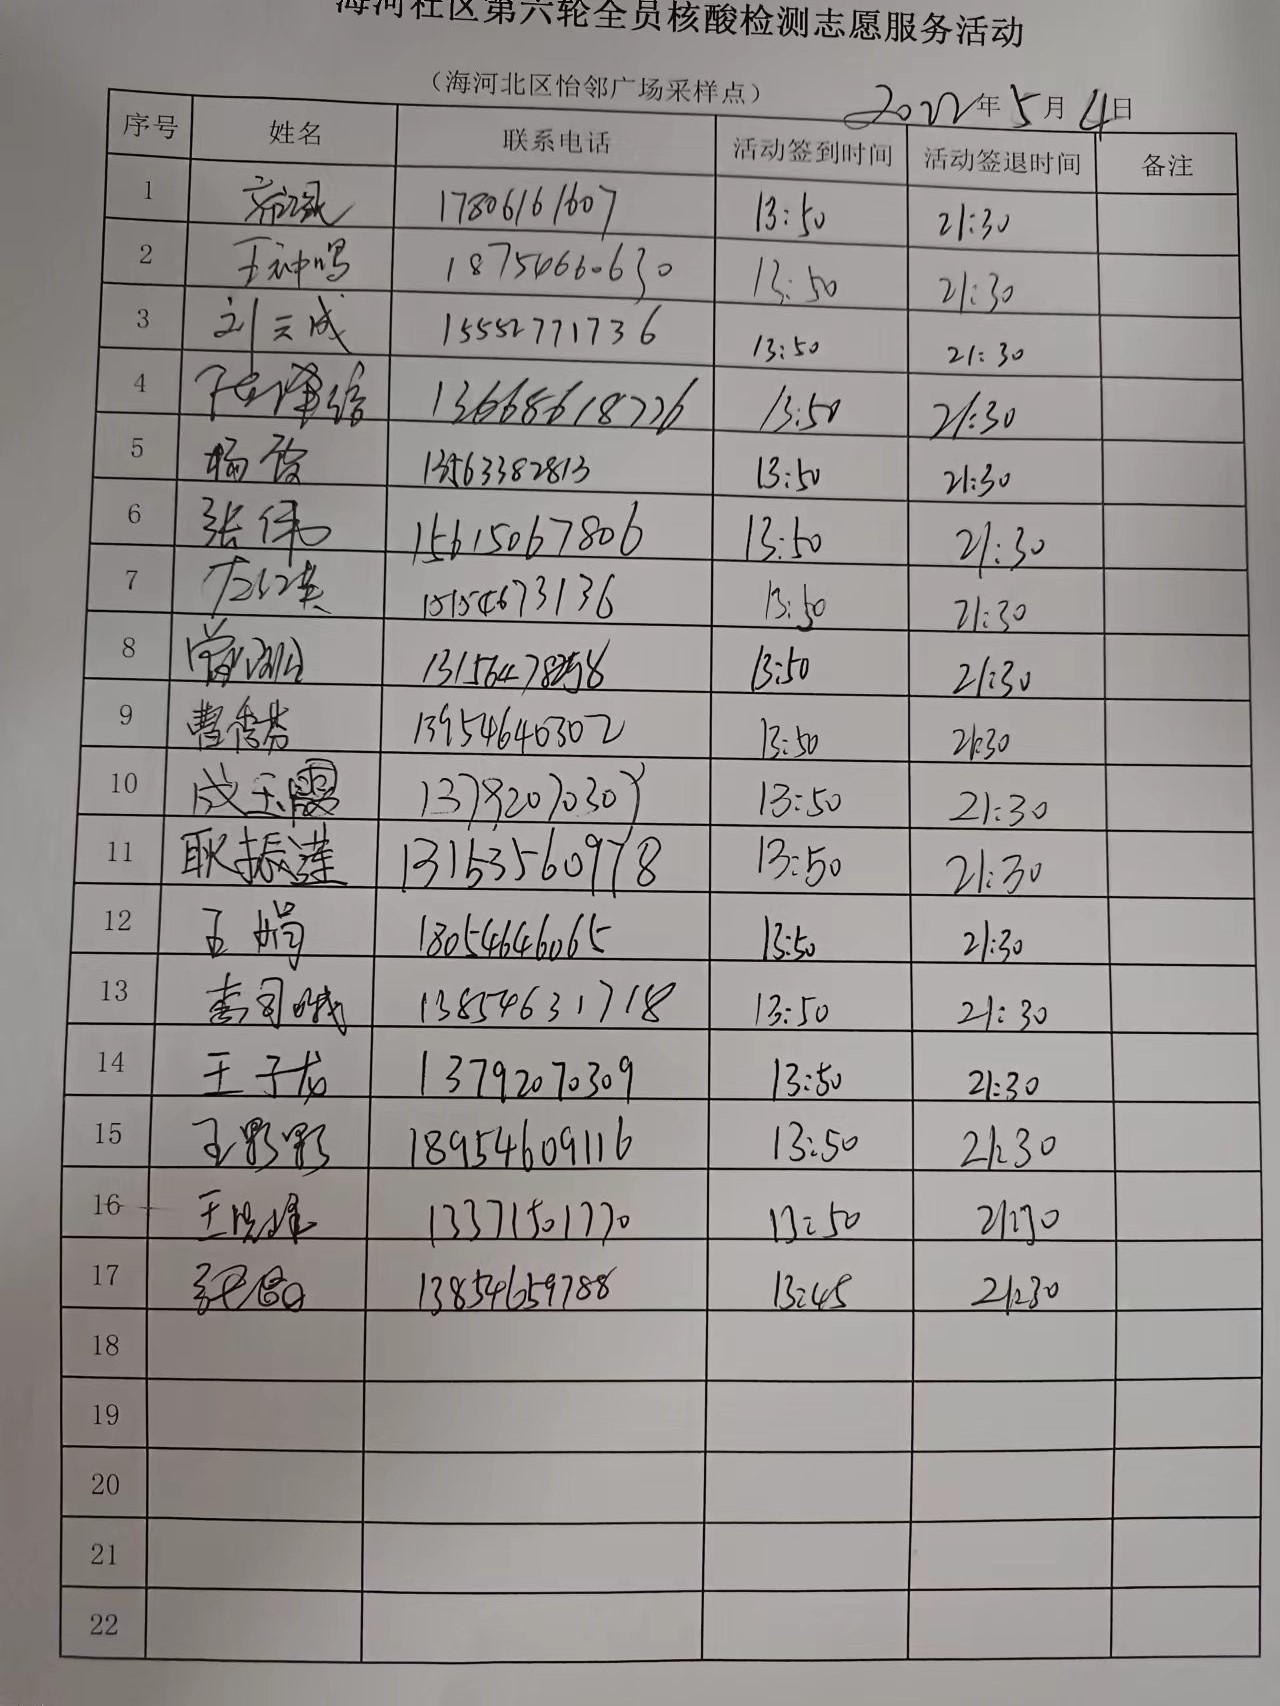 海河社区第六轮全员核酸检测志愿服务活动
（海河北区怡邻广场采样点） 2022年5月4日
序号 姓名 联系电话 活动签到时间 活动签退时间 备注
1 17806161607 13:50 21:30
2 王钟鸣 18754660630 13:50 21:30
3 刘云成 15552771736 13:50 21:30
4 13668618776 13:50 21:30
5 杨俊 13563382813 13:50 21:30
6 张伟 15615067806 13:50 21:30
7 15154673136 13:50 21:30
8 13:50 21:30
9 曹秀芬 13954640302 13:50 21:30
10 成玉霞 13:50 21:30
11 耿振莲 13:50 21:30
12 王娟 18054646065 13:50 21:30
13 李司晓 13854631718 13:50 21:30
14 王子龙 13792070309 13:50 21:30
15 王影影 18954609116 13:50 21:30
16 王晓峰 13371501770 13:50 21:30
17 13854659788 13:45 21:30
18
19
20
21
22